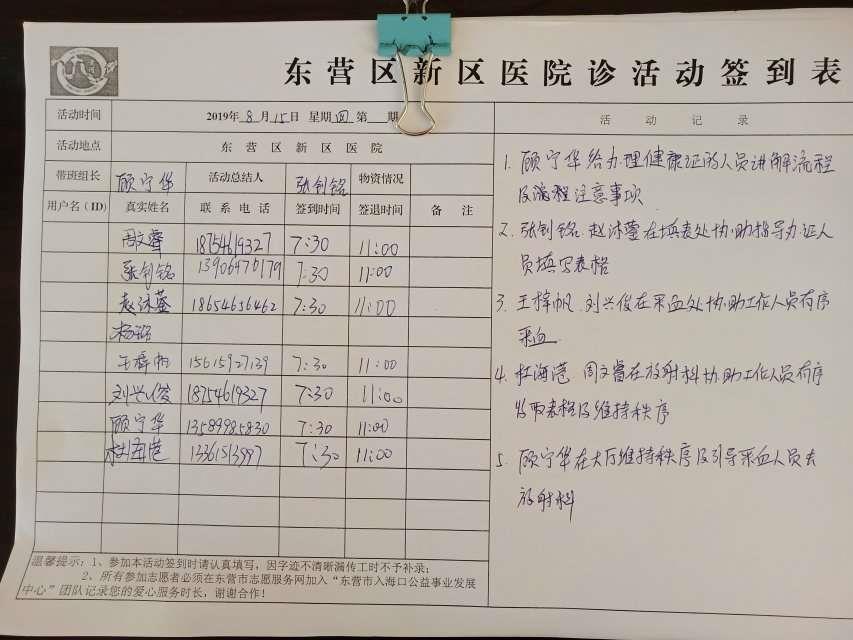 东营区新区医院诊活动签到表
活动时间 2019年8月15日 星期四 第 期 活动记录
活动地点 东营区新区医院
带班组长 顾宁华 活动总结人 张钊铭 物资情况
用户名(ID) 真实姓名 联系电话 签到时间 签退时间 备注
周文睿 18754619327 7:30 11:00
张钊铭 13906470179 7:30 11:00
赵沐蓥 18654656462 7:30 11:00
杨
王梓帆 15615927139 7:30 11:00
刘兴俊 18754619327 7:30 11:00
顾宁华 13589985830 7:30 11:00
杜海港 13361513997 7:30 11:00
1. 顾宁华给办理健康证的人员讲解流程
及流程注意事项
2. 张钊铭.赵沐蓥在填表处协助指导办证人
员填写表格
3. 王梓帆.刘兴俊在采血处协助工作人员有序
采血
4. 杜海港.周文睿在放射科协助工作人员有序
发取表格及维持秩序
5. 顾宁华在大厅维持秩序及引导采血人员去
放射科
温馨提示:1、参加本活动签到时请认真填写,因字迹不清晰漏传工时不予补录;
2、所有参加志愿者必须在东营市志愿服务网加入“东营市入海口公益事业发展
中心”团队记录您的爱心服务时长,谢谢合作!